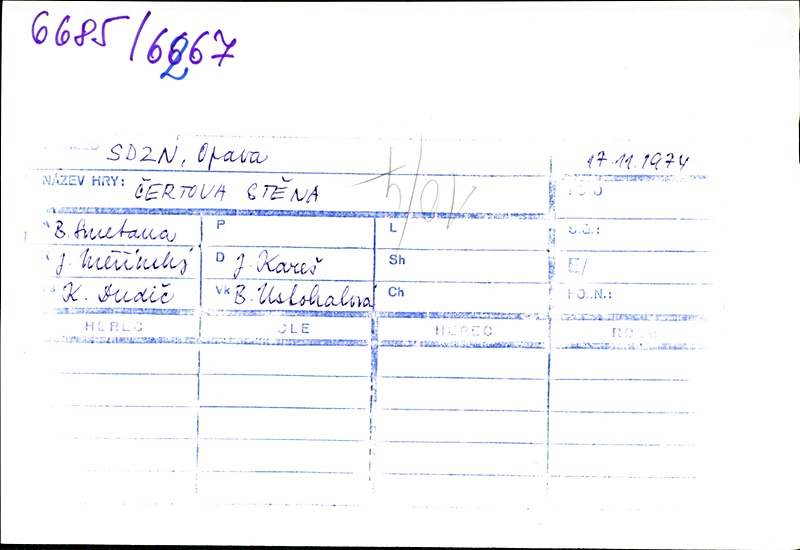 6685/6667
2
SDZN, Opava
17.11.1974
NÁZEV HRY: ČERTOVA STĚNA
B. Smetana P L
J. Měřínský D J. Kareš Sh E/
K. Dudič Vk B. Ustohalová Ch
HEREC HEREC